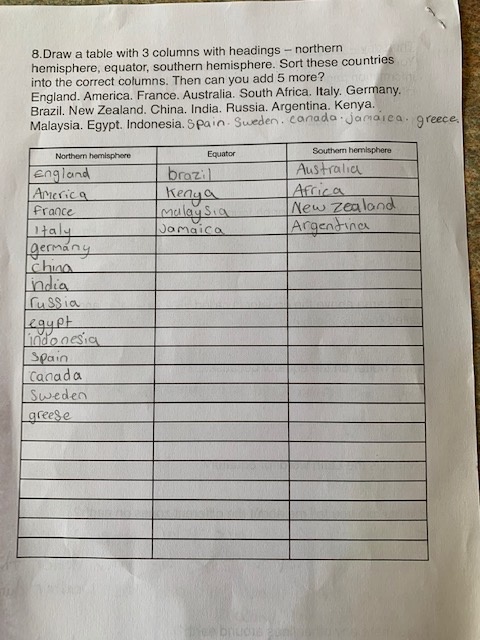 8.Draw a table with 3 columns with headings – northern
hemisphere, equator, southern hemisphere. Sort these countries
into the correct columns. Then can you add 5 more?
England. America. France. Australia. South Africa. Italy. Germany.
Brazil. New Zealand. China. India. Russia. Argentina. Kenya.
Malaysia. Egypt. Indonesia. Spain. Sweden. canada. jamaica. greece.
Northern hemisphere Equator Southern hemisphere
England brazil Australia
America Kenya Africa
France malaysia New zealand
Italy Jamaica Argentina
germany
china
india
russia
egypt
indonesia
Spain
canada
Sweden
greese